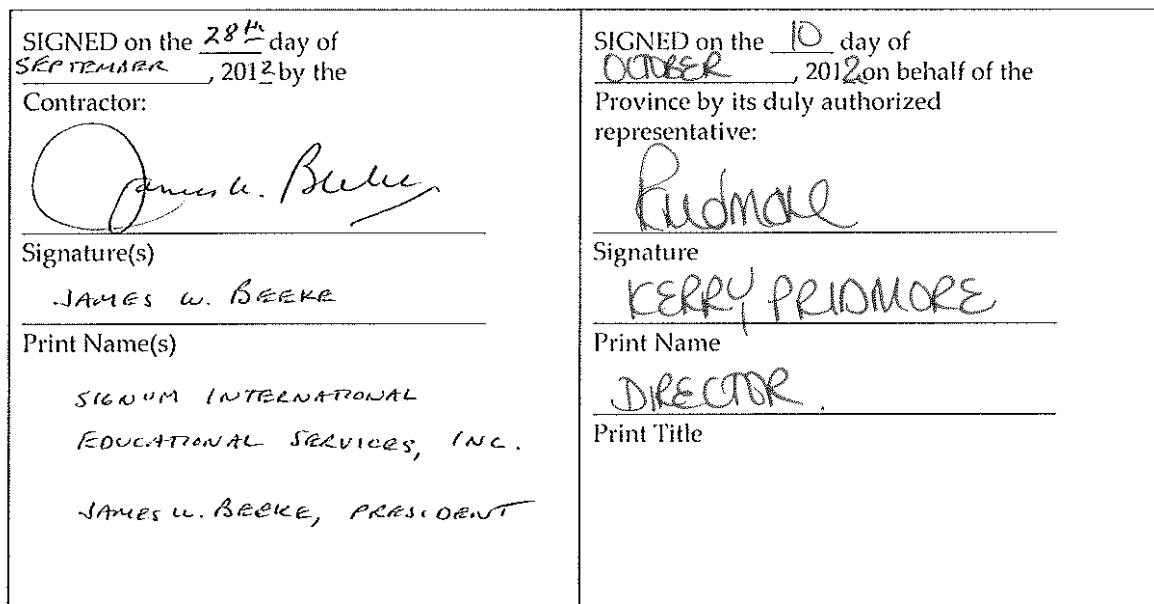 SIGNED on the 28th day of
SEPTEMBER, 2012 by the
Contractor:
James W. Beeke
Signature(s)
JAMES W. BEEKE
Print Name(s)
SIGNUM INTERNATIONAL
EDUCATIONAL SERVICES, INC.
JAMES W. BEEKE, PRESIDENT
SIGNED on the 10 day of
OCTOBER, 2012 on behalf of the
Province by its duly authorized
representative:
Signature
KERRY PRIDMORE
Print Name
DIRECTOR
Print Title